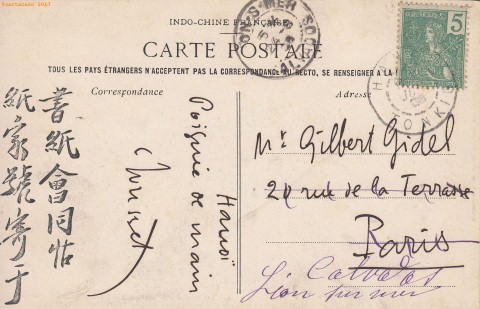 INDO-CHINE FRANÇAISE
CARTE POSTALE
TOUS LES PAYS ÉTRANGERS N'ACCEPTENT PAS LA CORRESPONDANCE AU RECTO, SE RENSEIGNER A LA
Correspondance
Adresse
5
TONKIN
Hanoï
Poignée de main
Mr Gilbert Gidel
20 rue de la Terrasse
Paris
Calvados
Lion sur mer
書紙會同帖
紙家號寄于